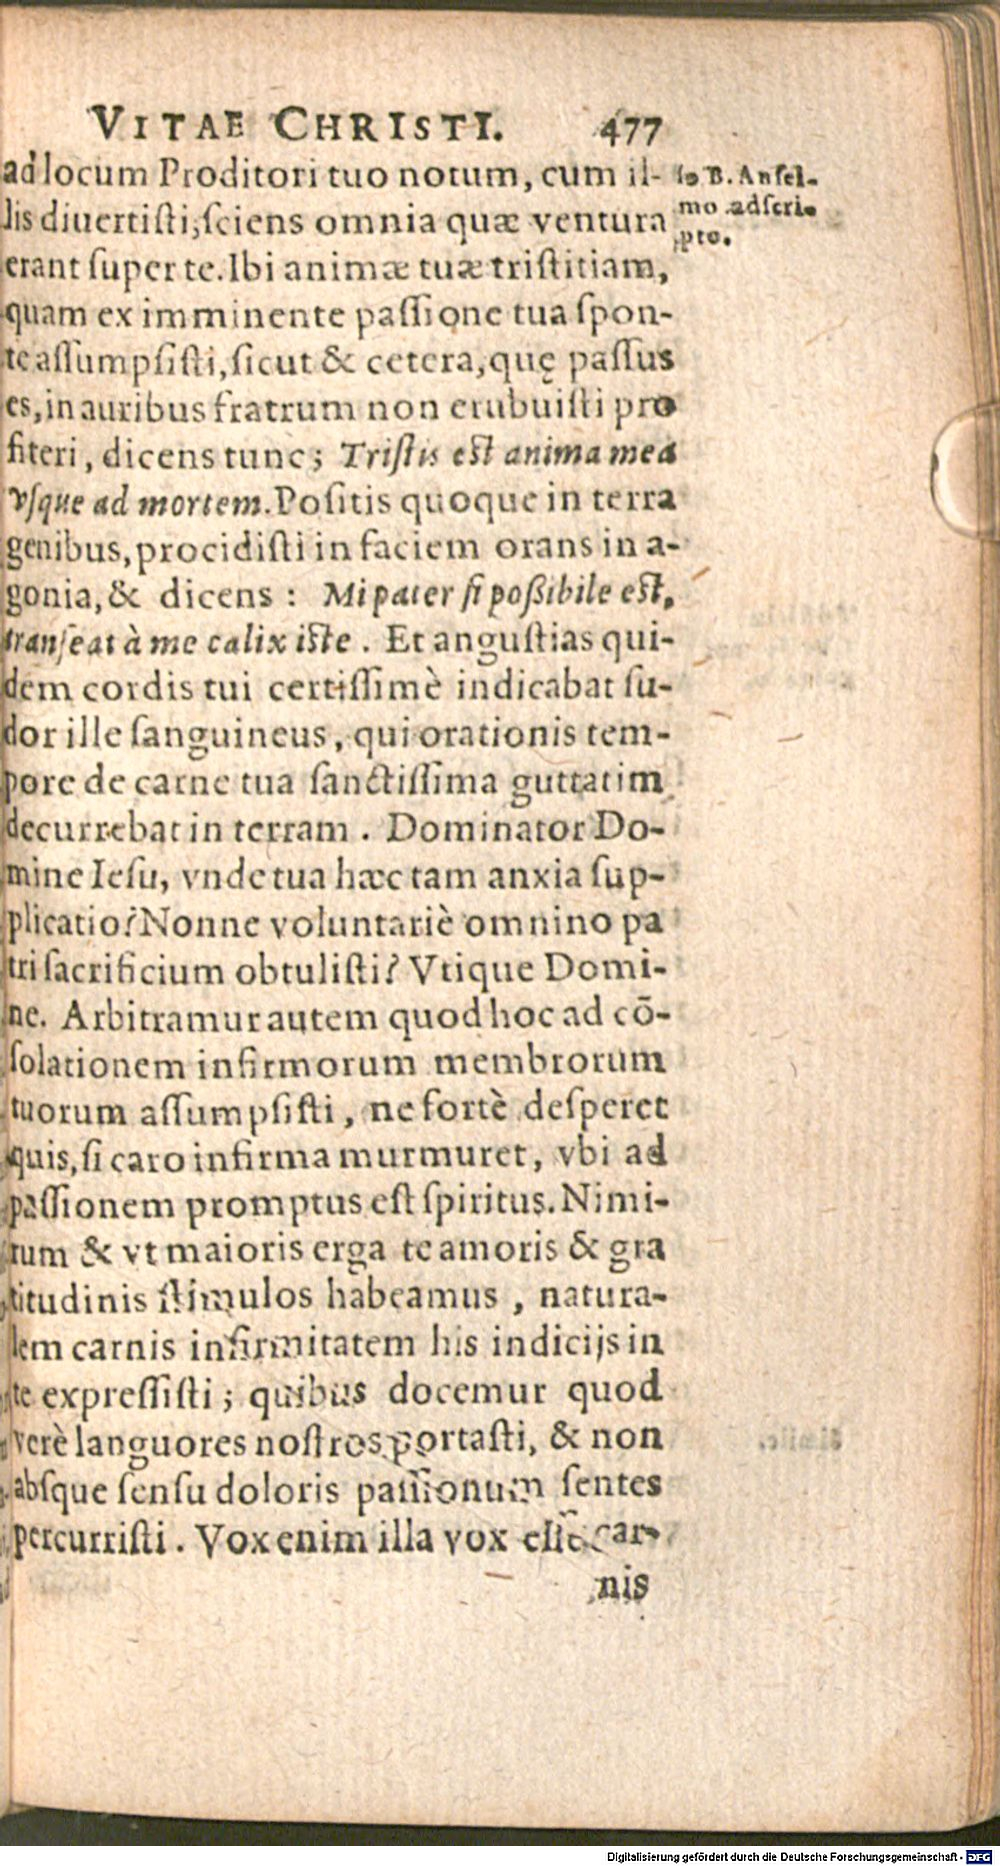 VITAE CHRISTI. 477
ad locum Proditori tuo notum, cum il-
lis diuertisti, sciens omnia quæ ventura
erant super te. Ibi animæ tuæ tristitiam,
quam ex imminente passione tua spon-
te assumpsisti, sicut & cetera, quę passus
es, in auribus fratrum non erubuisti pro
fiteri, dicens tunc; Tristis est anima mea
vsque ad mortem. Positis quoque in terra
genibus, procidisti in faciem orans in a-
gonia, & dicens: Mi pater si possibile est,
transeat à me calix iste. Et angustias qui-
dem cordis tui certissimè indicabat su-
dor ille sanguineus, qui orationis tem-
pore de carne tua sanctissima guttatim
decurrebat in terram. Dominator Do-
mine Iesu, vnde tua hæc tam anxia sup-
plicatio? Nonne voluntariè omnino pa
tri sacrificium obtulisti? Vtique Domi-
ne. Arbitramur autem quod hoc ad cō-
solationem infirmorum membrorum
tuorum assumpsisti, ne fortè desperet
quis, si caro infirma murmuret, vbi ad
passionem promptus est spiritus. Nimi-
rum & vt maioris erga te amoris & gra
titudinis stimulos habeamus, natura-
lem carnis infirmitatem his indicijs in
te expressisti; quibus docemur quod
verè languores nostros portasti, & non
absque sensu doloris passionum sentes
percurristi. Vox enim illa vox esse car-
nis
lo B. Ansel-
mo adscri-
pto.
Digitalisierung gefördert durch die Deutsche Forschungsgemeinschaft - DFG